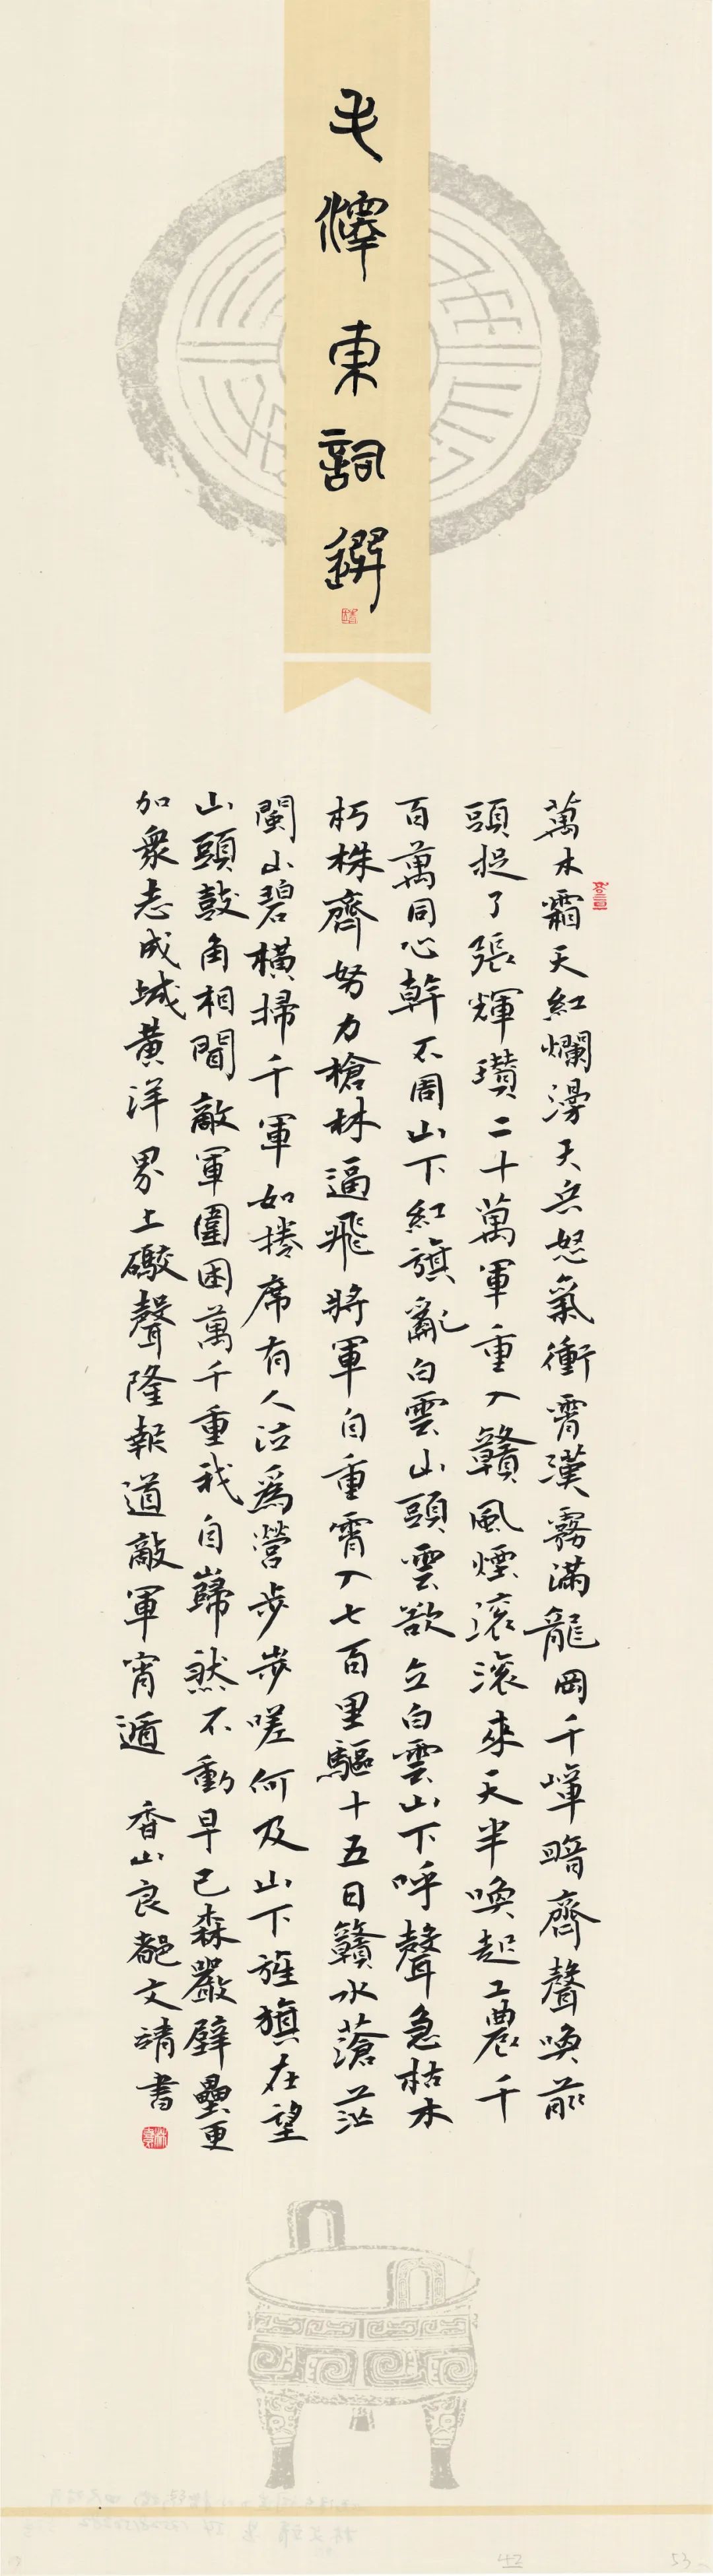 毛澤東詞選
萬木霜天紅爛漫天兵怒氣衝霄漢霧滿龍岡千嶂暗齊聲喚前
頭捉了張輝瓚二十萬軍重入贛風煙滾滾來天半喚起工農千
百萬同心幹不周山下紅旗亂白雲山頭雲欲立白雲山下呼聲急枯木
朽株齊努力槍林逼飛將軍自重霄入七百里驅十五日贛水蒼茫
閩山碧橫掃千軍如捲席有人泣爲營步步嗟何及山下旌旗在望
山頭鼓角相聞敵軍圍困萬千重我自巋然不動早已森嚴壁壘更
加衆志成城黃洋界上礮聲隆報道敵軍宵遁 香山良都文靖書
42
53